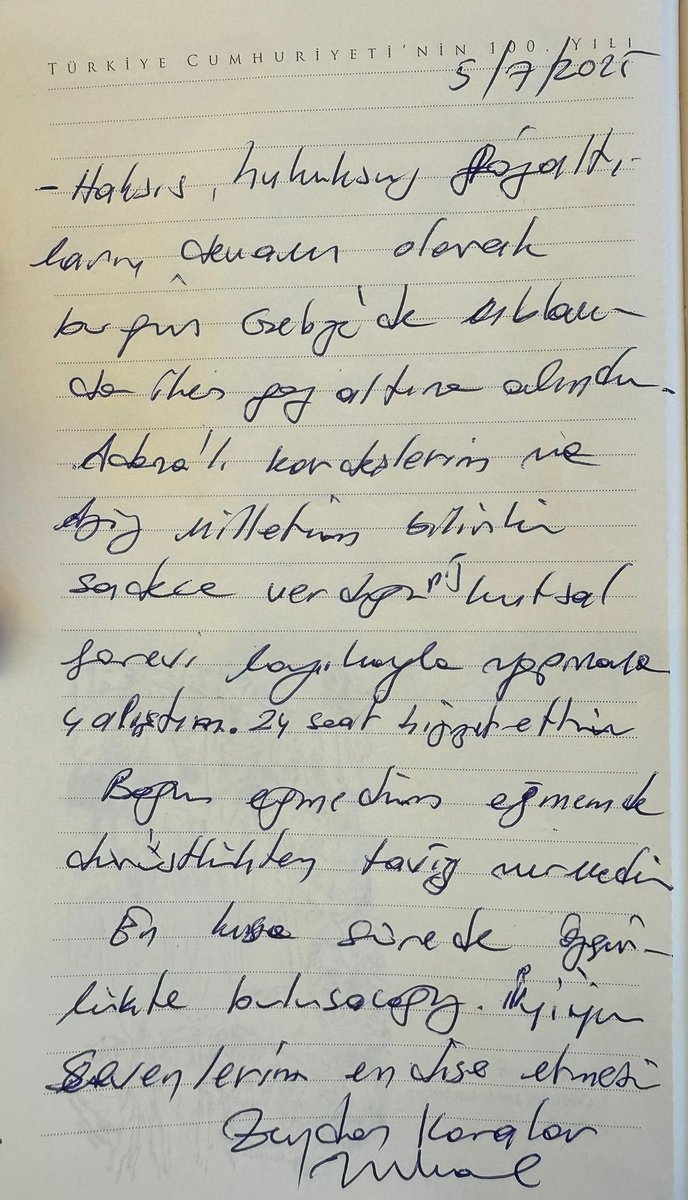 TÜRKİYE CUMHURİYETİ'NİN 100. YILI
5/7/2025
- Haksız, hukuksuz gözaltı-
ların devamı olarak
bugün Gebze'de
gözaltına alındım.
Adana'lı kardeşlerim ve
aziz milletim bilsinki
sadece verdiğiniz kutsal
görevi layıkıyla yapmaya
çalıştım. 24 saat hizmet ettim
Boyun eğmedim eğmemde
dürüstlükten taviz vermedim
En kısa sürede özgür-
lükte buluşacağız. İyiyim
Sevenlerim endişe etmesin
Zeydan Karalar